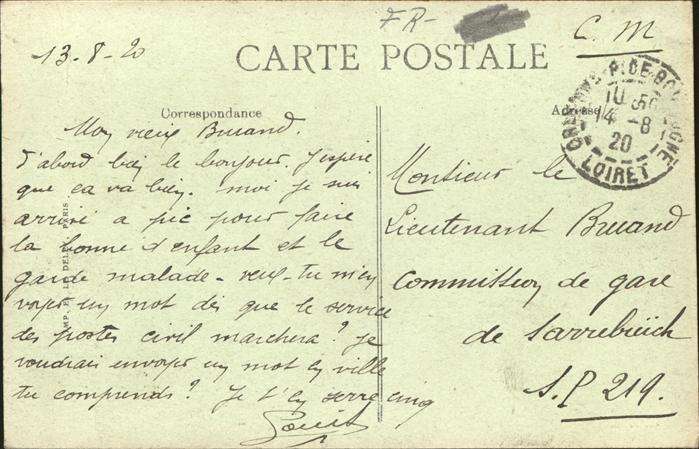 FR-
C. M
13-8-20
CARTE POSTALE
Correspondance
Adresse
ORLEANS R. DE BOURGOGNE
10 50
14 -8
20
LOIRET
Mon vieux Bruand.
d'abord bien le bonjour. J'espère
que ça va bien. moi je suis
arrivé a pic pour faire
la bonne d'enfant et le
garde malade - veux-tu m'en
voyer un mot dès que le service
des postes civil marchera? je
voudrais envoyer un mot en ville
tu comprends? Je t'en serre cinq
Monsieur le
Lieutenant Bruand
Commission de gare
de Sarrebrück
S.P 219.
IMP. DELAY PARIS